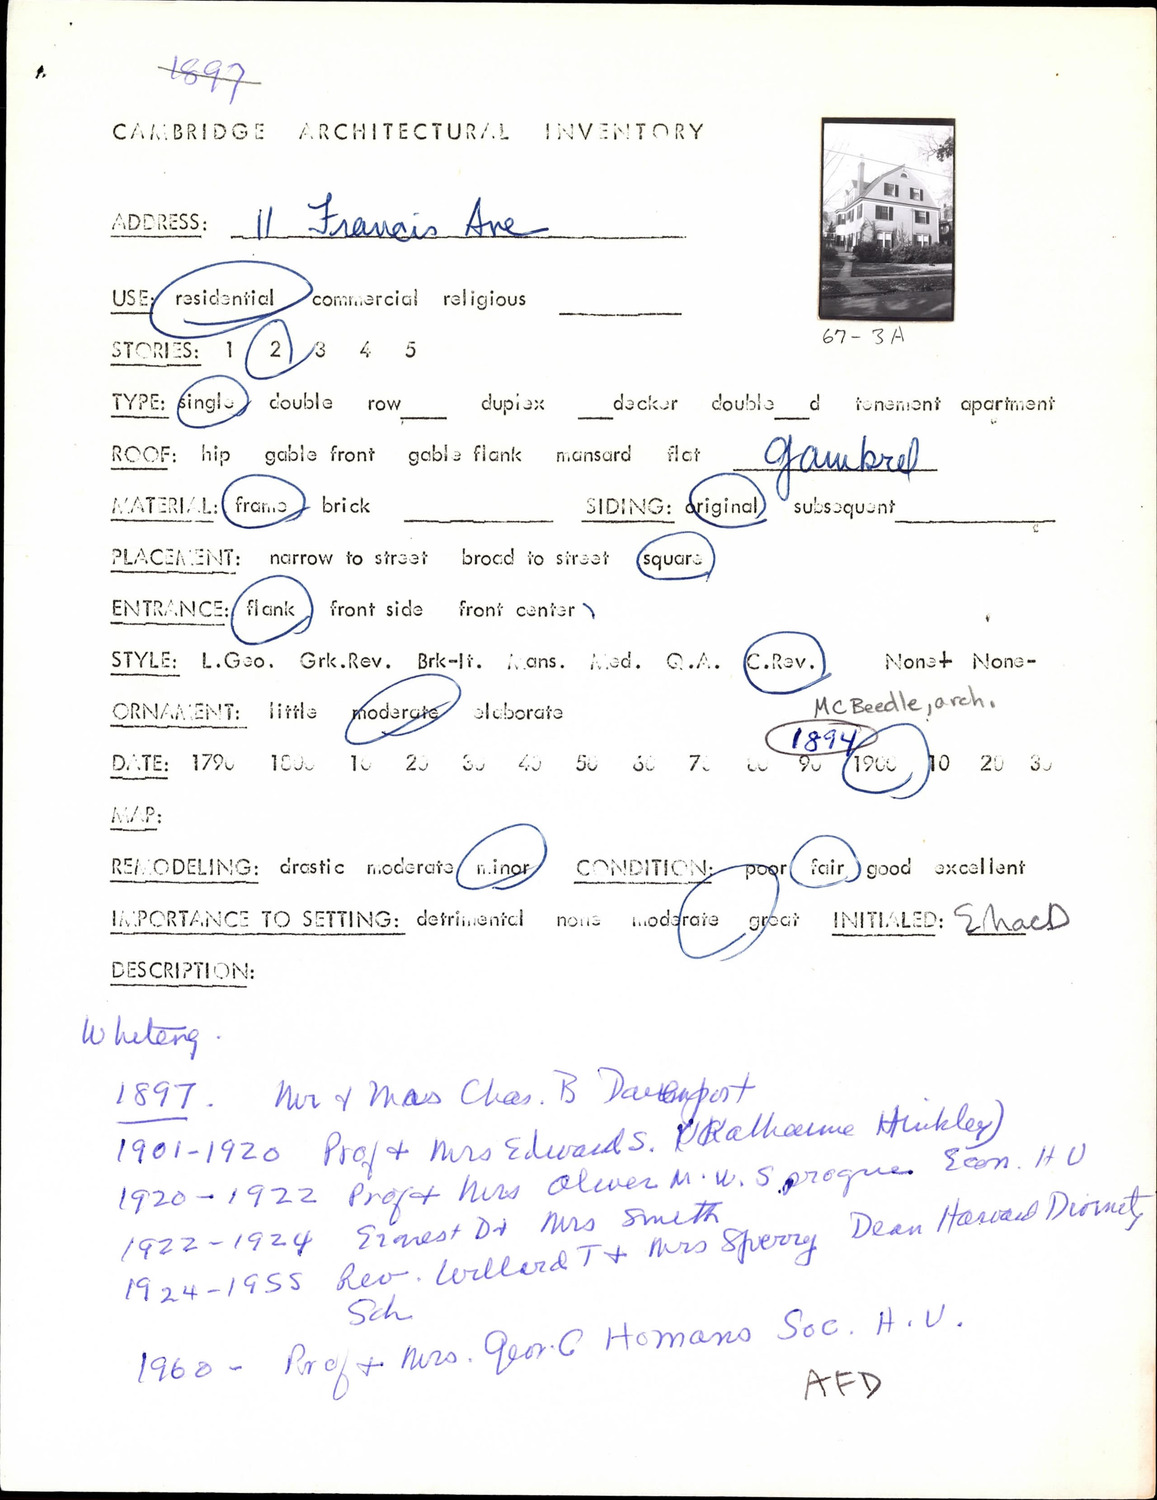 1897
CAMBRIDGE ARCHITECTURAL INVENTORY
ADDRESS: 11 Francis Ave
USE: residential commercial religious
67-3A
STORIES: 1 2 3 4 5
TYPE: single double row___ duplex ___decker double___d tenement apartment
ROOF: hip gable front gable flank mansard flat gambrel
MATERIAL: frame brick ______ SIDING: original subsequent______
PLACEMENT: narrow to street broad to street square
ENTRANCE: flank front side front center
STYLE: L.Geo. Grk.Rev. Brk-It. Mans. Med. Q.A. C.Rev. None+ None-
MCBeedle, arch.
ORNAMENT: little moderate elaborate
1894
DATE: 1790 1800 10 20 30 40 50 60 70 80 90 1900 10 20 30
MAP:
REMODELING: drastic moderate minor CONDITION: poor fair good excellent
IMPORTANCE TO SETTING: detrimental none moderate great INITIALED: EMacD
DESCRIPTION:
Whiteing.
1897. Mr & Mrs Chas. B Davenport
1901-1920 Prof + Mrs Edward S. (Katharine Hinkley)
1920-1922 Prof + Mrs Oliver M. W. Sprogue Econ. H U
1922-1924 Ernest D + Mrs Smith
1924-1955 Rev. Willard T + Mrs Sperry Dean Harvard Divinity
Sch
1960- Prof + Mrs. Geor. C Homans Soc. H. U.
AFD